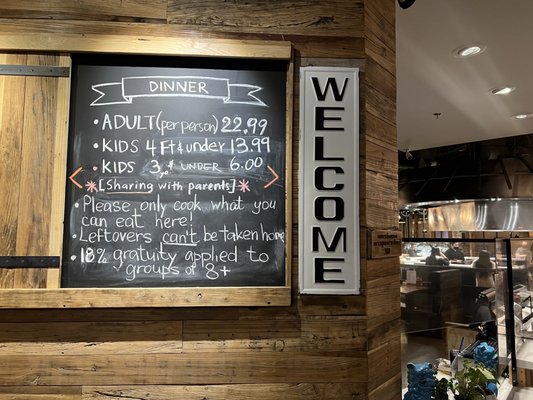 DINNER
• ADULT (per person) 22.99
• KIDS 4 Ft & under 13.99
• KIDS 3 ft & UNDER 6.00
* [Sharing with parents] *
• Please only cook what you
can eat here!
• Leftovers can't be taken home
• 18% gratuity applied to
groups of 8+
WELCOME